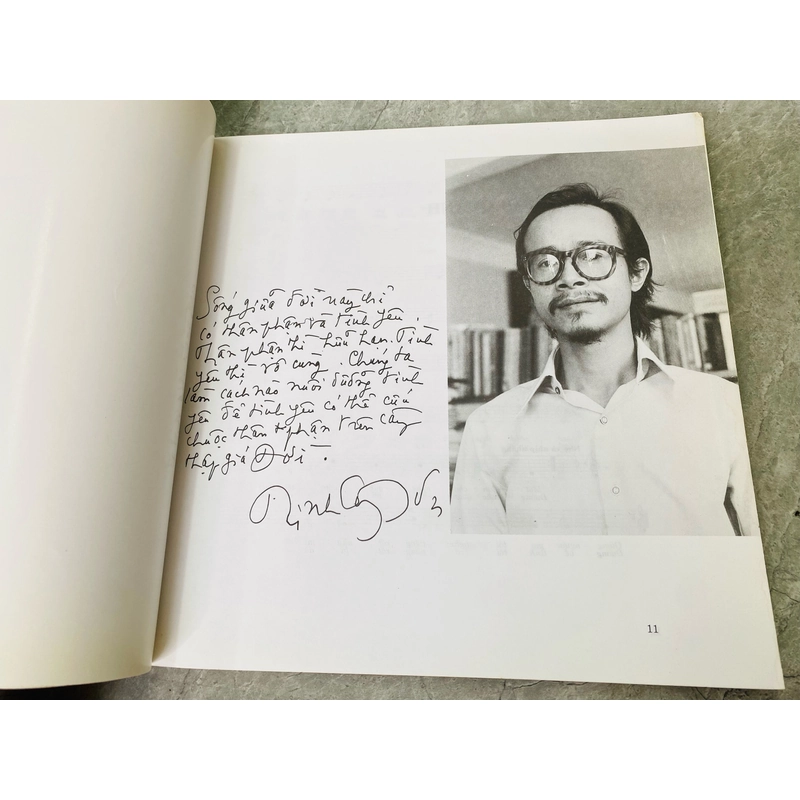 Sống giữa đời này chỉ
có thân phận và tình yêu.
Thân phận thì hữu hạn. Tình
yêu thì vô cùng. Chúng ta
làm cách nào nuôi dưỡng tình
yêu để tình yêu có thể cứu
chuộc thân phận trên cây
thập giá Đời.
Trịnh Công Sơn
11